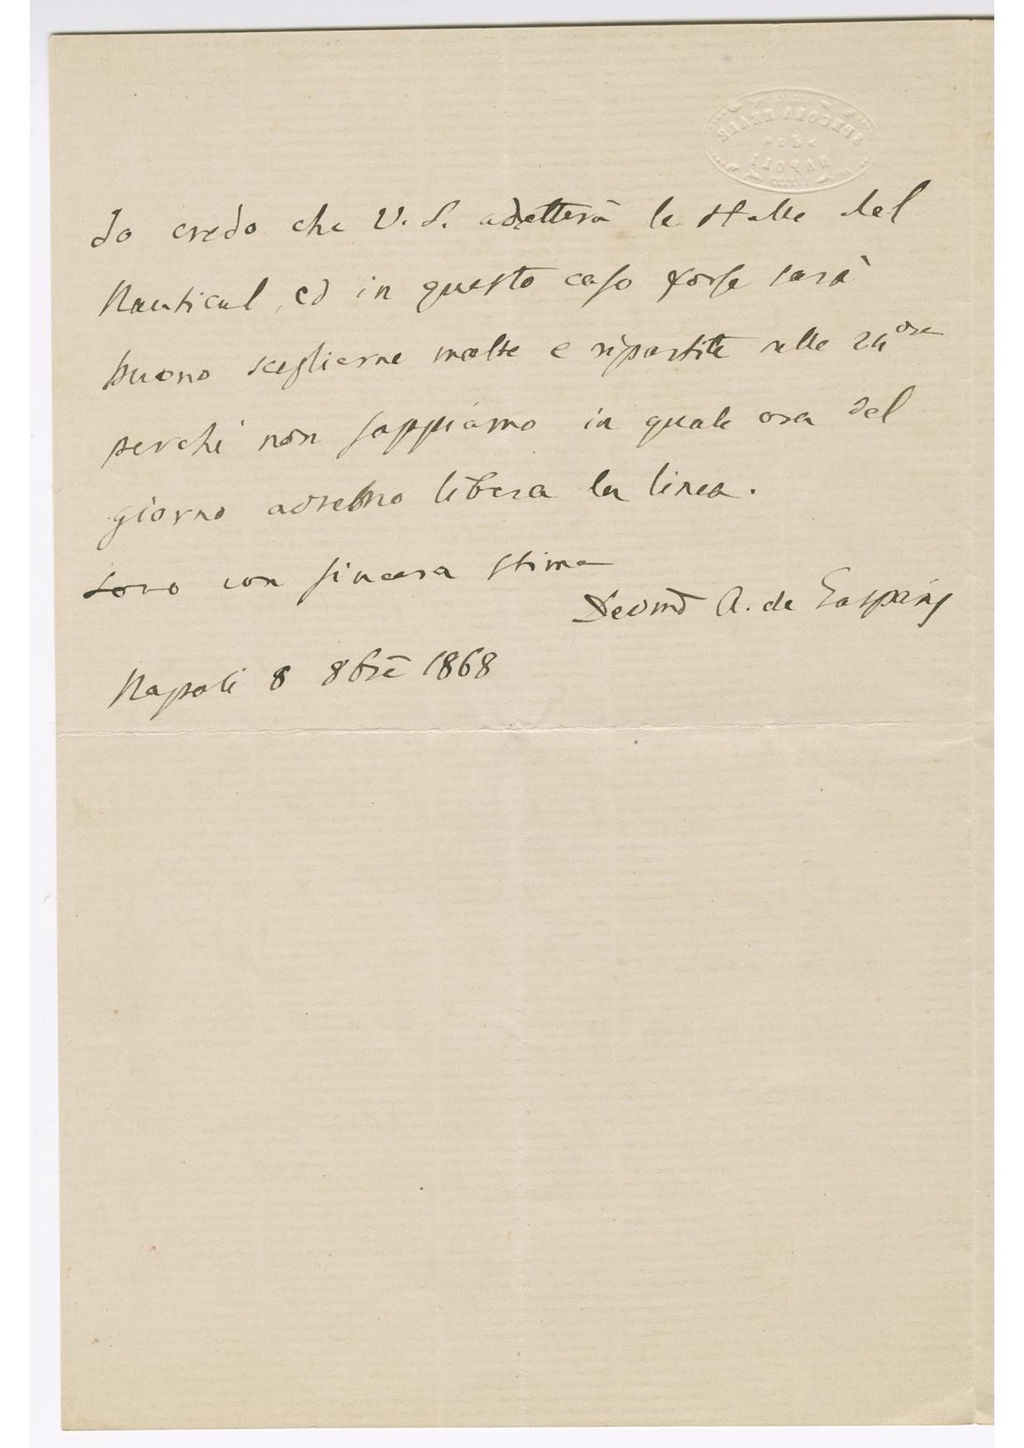 SPECOLA REALE
DI
NAPOLI
Io credo che V. S. adotterà le stelle del
Nautical, ed in questo caso forse sarà
buono sceglierne molte e ripartite nelle 24 ore
perchè non sappiamo in quale ora del
giorno avremo libera la linea.
Sono con sincera stima
A. de Gasparis
Napoli 8 8bre 1868